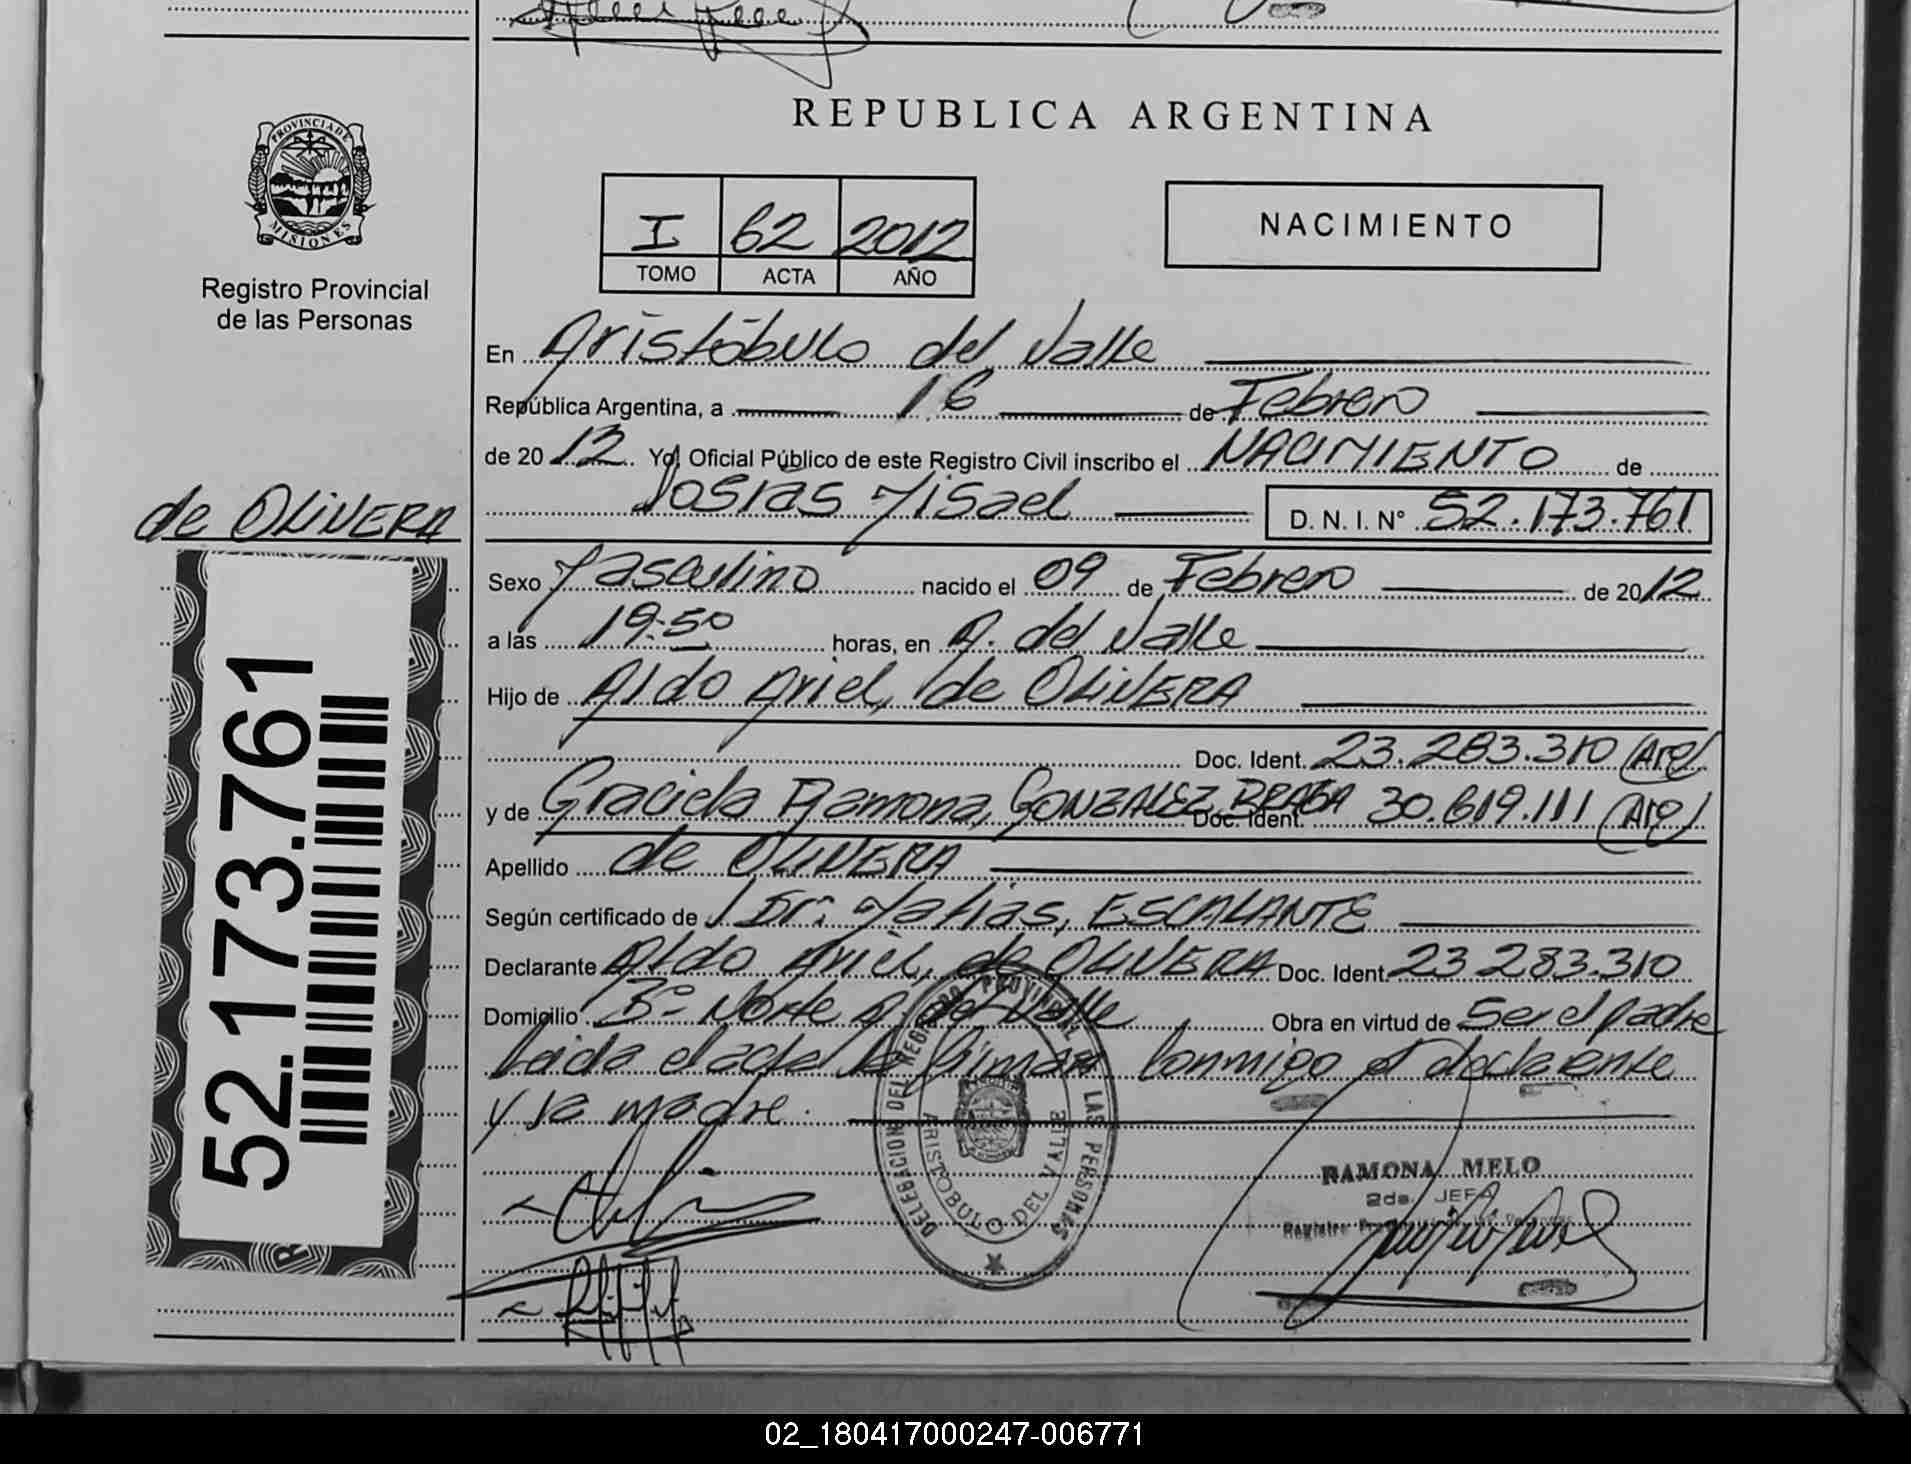 REPUBLICA ARGENTINA
PROVINCIA DE
MISIONES
Registro Provincial
de las Personas
I 62 2012
TOMO ACTA AÑO
NACIMIENTO
En Aristóbulo del Valle
República Argentina, a 16 de Febrero
de 2012 Yo, Oficial Público de este Registro Civil inscribo el NACIMIENTO de
Josías Misael D. N. I. N° 52.173.761
de OLIVERA
52.173.761
Sexo Masculino nacido el 09 de Febrero de 2012
a las 19:50 horas, en A. del Valle
Hijo de Aldo Ariel, de OLIVERA
Doc. Ident. 23.283.310 (Arg)
y de Graciela Ramona, GONZALEZ BRAGA Doc. Ident. 30.619.111 (Arg)
Apellido de OLIVERA
Según certificado de Dr. Matías, ESCALANTE
Declarante Aldo Ariel, de OLIVERA Doc. Ident. 23 283.310
Domicilio B° Norte A. del Valle Obra en virtud de Ser el padre
Leida el acta la firman conmigo el declarante
y la madre.
DELEGACION DEL REGISTRO PROVINCIAL DE LAS PERSONAS
ARISTOBULO DEL VALLE
RAMONA MELO
2da. JEFA
Registro Provincial de las Personas
02_180417000247-006771